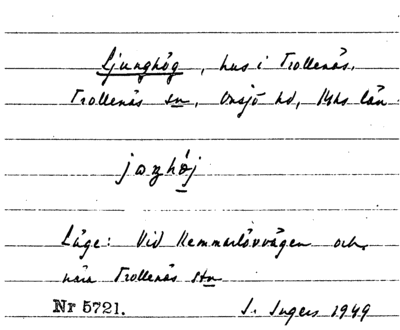 Ljunghög, hus i Trollenäs,
Trollenäs sn, Onsjö hd, Mhs län
jɷŋhøj
Läge: Vid Remmarlövvägen och
nära Trollenäs stn
Nr 5721. S. Ingers 1949